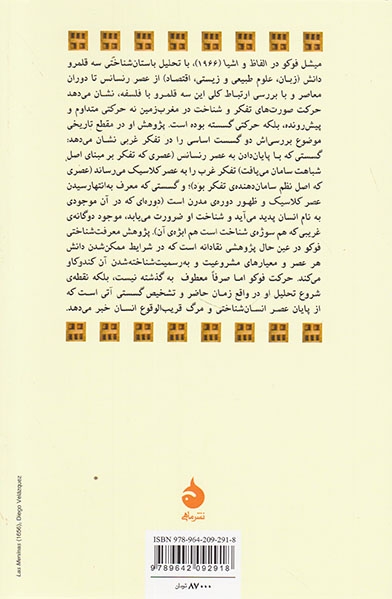 میشل فوکو در الفاظ و اشیا (۱۹۶۶)، با تحلیل باستان‌شناختیِ سه قلمرو
دانش (زبان، علوم طبیعی و زیستی، اقتصاد) از عصر رنسانس تا دوران
معاصر و با بررسی ارتباط کلی این سه قلمرو با فلسفه، نشان می‌دهد
حرکت صورت‌های تفکر و شناخت در مغرب‌زمین نه حرکتی متداوم و
پیش‌رونده، بلکه حرکتی گسسته بوده است. پژوهش او در مقطع تاریخی
موضوع بررسی‌اش دو گسست اساسی را در تفکر غربی نشان می‌دهد:
گسستی که با پایان‌دادن به عصر رنسانس (عصری که تفکر بر مبنای اصل
شباهت سامان می‌یافت) تفکر غرب را به عصر کلاسیک می‌رساند (عصری
که اصل نظم سامان‌دهنده‌ی تفکر بود)؛ و گسستی که معرف به‌انتهارسیدن
عصر کلاسیک و ظهور دوره‌ی مدرن است (دوره‌ای که در آن موجودی
به نام انسان پدید می‌آید و شناخت او ضرورت می‌یابد، موجود دوگانه‌ی
غریبی که هم سوژه‌ی شناخت است هم ابژه‌ی آن). پژوهش معرفت‌شناختی
فوکو در عین حال پژوهشی نقادانه است که در شرایط ممکن‌شدن دانش
هر عصر و معیارهای مشروعیت و به‌رسمیت‌شناخته‌شدن آن کندوکاو
می‌کند. حرکت فوکو اما صرفاً معطوف به گذشته نیست، بلکه نقطه‌ی
شروع تحلیل او در واقع زمان حاضر و تشخیص گسستی آتی است که
از پایان عصر انسان‌شناختی و مرگ قریب‌الوقوع انسان خبر می‌دهد.
Las Meninas (1656), Diego Velázquez
نشر ماهی
ISBN 978-964-209-291-8
9789642092918
۸۷۰۰۰ تومان